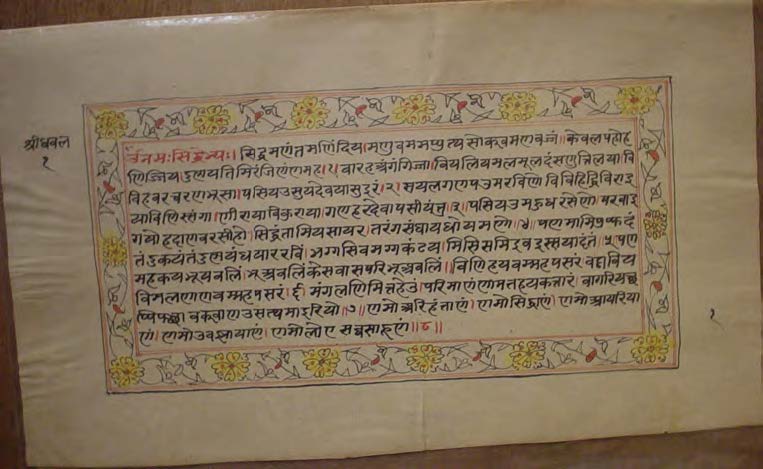 श्रीधवल
१
ॐनमःसिद्धेभ्यः। सिद्धमणंतमणिंदिय। मणुवममप्पुत्थसोक्खमणवज्जं॥ केवलपहोह
णिज्जियदुण्णयतिमिरंजिणंणमह।१। बारहअंगंगिज्झा। वियलियमलमूलदंसणुत्तिलया। वि
विहवरचरणभूसा। पसियउसुयदेवयासुइरं।२। सयलगणपउमरविणो विविहिद्धिविराइ
याविणिस्संगा। णीरायाविकुराया। गणहरदेवापसीयंतु॥३॥ पसियउमहुधरसेणो परवाइ
गयोहदाणवरसीहो। सिद्धंतामियसायर। तरंगसंघायधोयमणो॥४॥ पणमामिपुप्फदं
तंदुकयंतंदुण्णयंधयाररविं। भग्गसिवमग्गकंटय। मिसिसमिइवइसयादंतं।५।पण
महकयभूयबलिं। भूअबलिंकेसवासपरिभूअबलिं। विणिहयवम्महपसरं वद्दाविय
विमलणाणवम्महपसरं।६। मंगलणिमित्तहेउं। परिमाणंणामतहयकत्तारं। वागरियछ
प्पिपच्छा वक्खाणउसत्थमाइरियो।७। णमोअरिहंताणं। णमोसिद्धाणं। णमोआयरिया
णं। णमोउवज्झायाणं। णमोलोए सव्वसाहूणं॥८॥
१